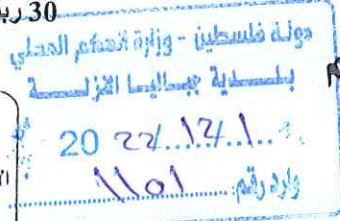 30
دولة فلسطين - وزارة الحكم المحلي
بلدية جباليا النزلة
20 22/12/1
وارد رقم: 1101